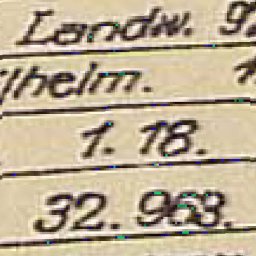 Landw.
lhelm.
1. 18.
32. 963.